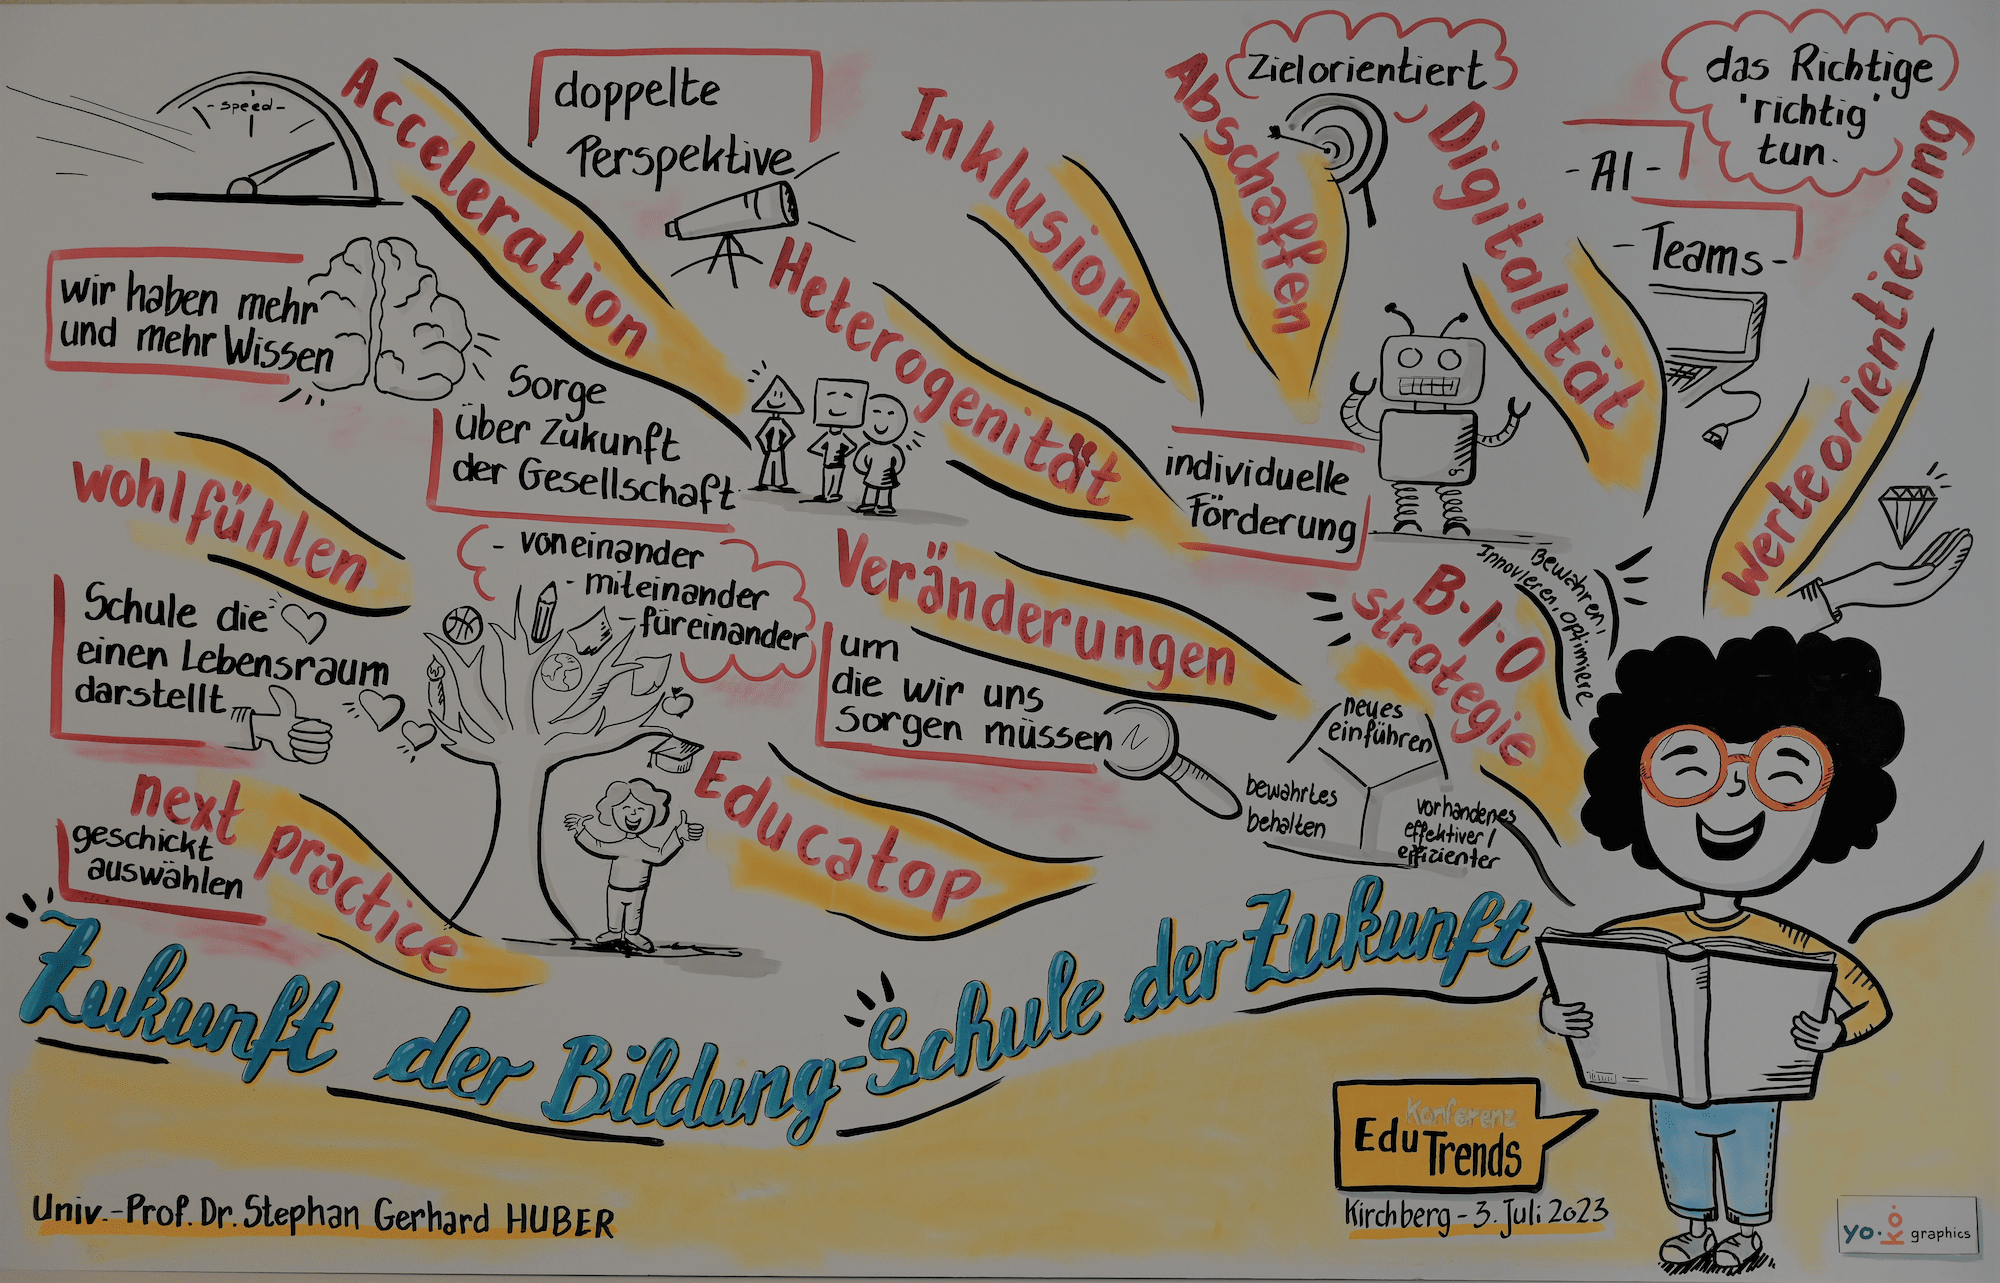 - speed -
Acceleration
doppelte
Perspektive
Inklusion
Abschaffen
Zielorientiert
Digitalität
- AI -
- Teams -
das Richtige
'richtig'
tun.
Werteorientierung
wir haben mehr
und mehr Wissen
Heterogenität
Sorge
über Zukunft
der Gesellschaft
individuelle
Förderung
wohlfühlen
- voneinander
- miteinander
- füreinander
Schule die
einen Lebensraum
darstellt
Veränderungen
um
die wir uns
sorgen müssen
B.I.O
strategie
Bewahren,
Innovieren, Optimiere
neues
einführen
bewährtes
behalten
vorhandenes
effektiver/
effizienter
next practice
geschickt
auswählen
Educatop
Zukunft der Bildung-Schule der Zukunft
Konferenz
EduTrends
Kirchberg - 3. Juli 2023
Univ.-Prof. Dr. Stephan Gerhard HUBER
yo.ko.
graphics